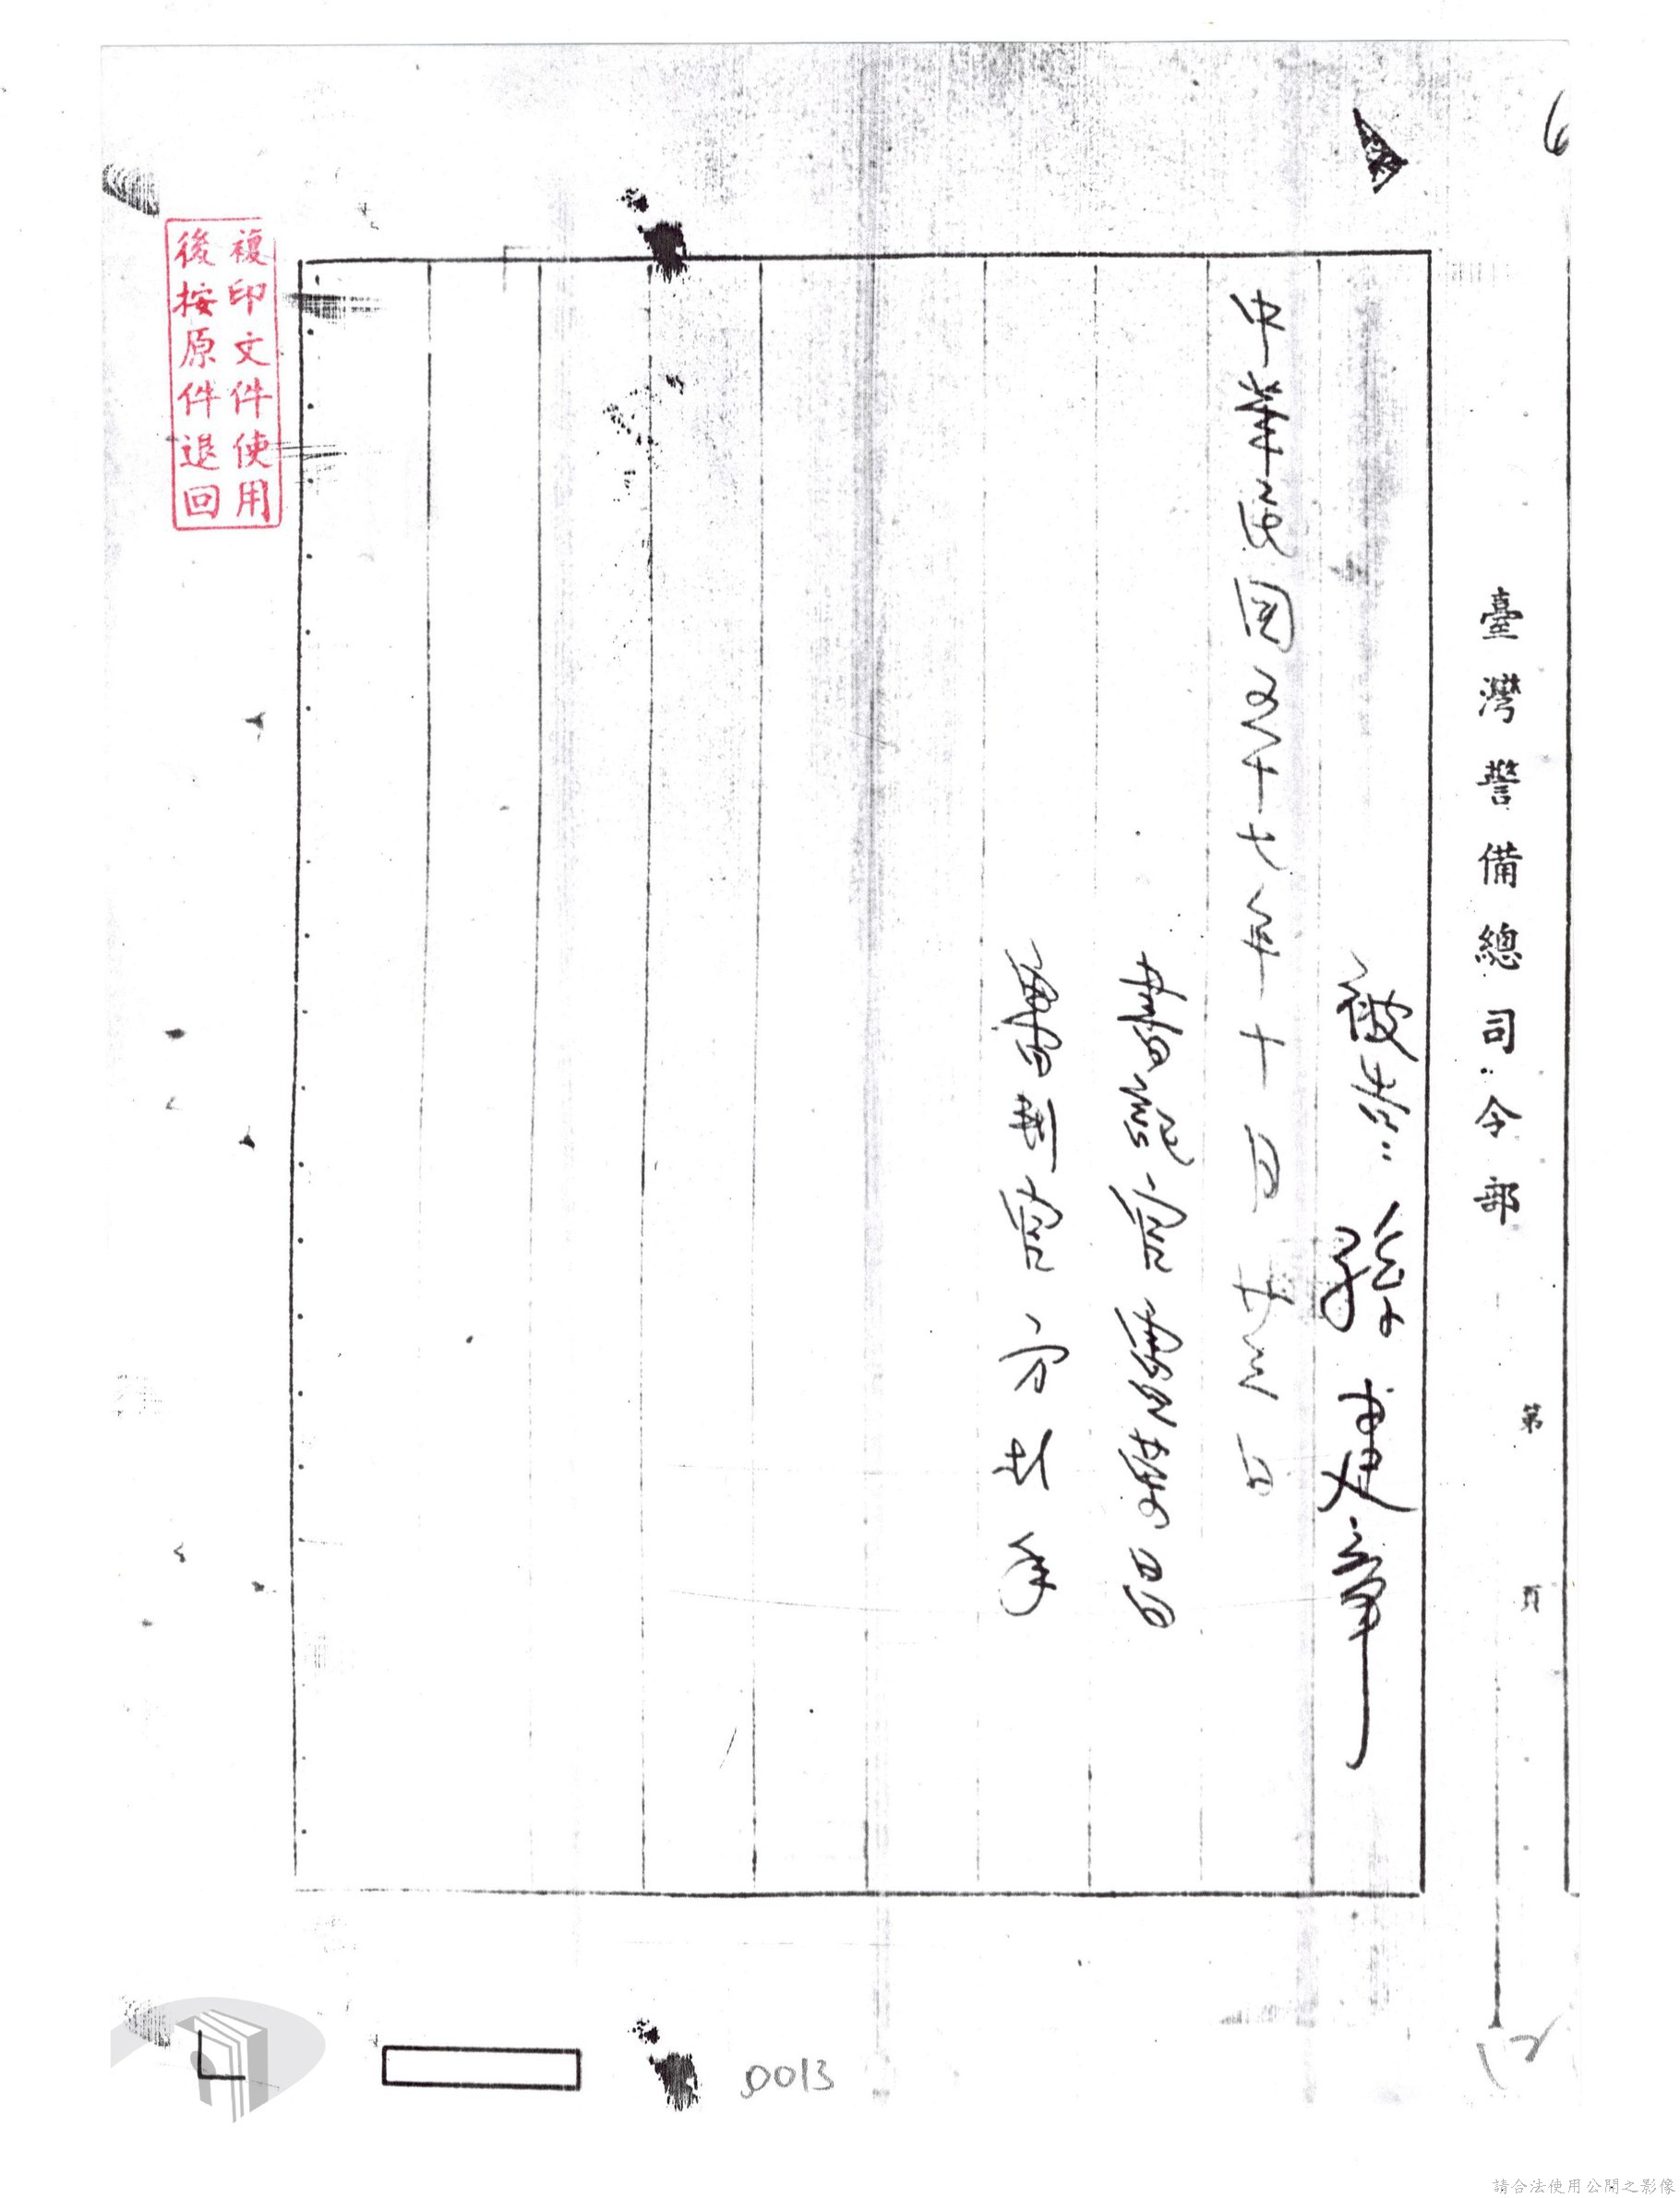 6
臺灣警備總司令部
第 頁
被告: 孫建章
中華民國五十七年十月廿三日
書記官
審判官 方彭年
複印文件使用
後按原件退回
0013
12
請合法使用公開之影像